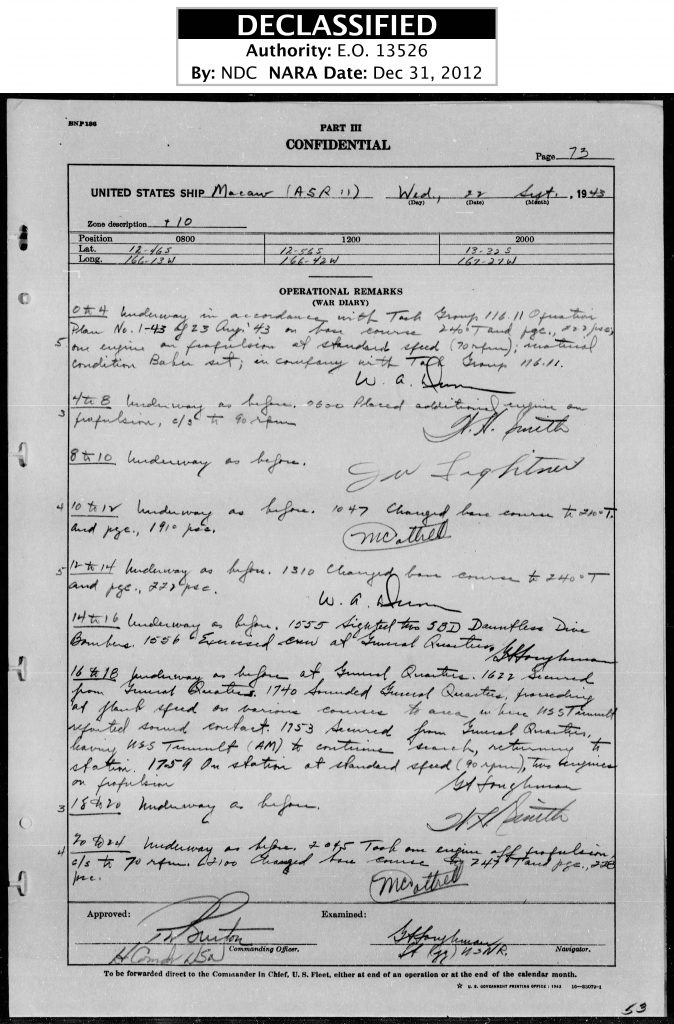 DECLASSIFIED
Authority: E.O. 13526
By: NDC NARA Date: Dec 31, 2012
PART III
CONFIDENTIAL
Page 73
UNITED STATES SHIP Macaw (ASR 11) Wed., 22 Sept., 1943
(Day) (Date) (Month)
Zone description +10
Position 0800 1200 2000
Lat. 12-46S 12-56S 13-32S
Long. 166-13W 166-42W 167-27W
OPERATIONAL REMARKS
(WAR DIARY)
0 to 4 Underway in accordance with Task Group 116.11 Operation
Plan No. 1-43 of 23 Aug. '43 on base course 240°T and pgc., 222 psc,
5 one engine on propulsion at standard speed (70 rpm); material
condition Baker set; in company with Task Group 116.11.
W. A. Dunn
4 to 8 Underway as before. 0600 Placed additional engine on
3 propulsion, c/s to 90 rpm
H. H. Smith
8 to 10 Underway as before.
JW Lightner
4 10 to 12 Underway as before. 1047 Changed base course to 210°T.
and pgc., 191° psc.
5 12 to 14 Underway as before. 1310 Changed base course to 240°T
and pgc., 222° psc.
W. A. Dunn
14 to 16 Underway as before. 1555 Sighted two SBD Dauntless Dive
Bombers. 1556 Exercised crew at General Quarters.
GF Loughman
16 to 18 Underway as before at General Quarters. 1622 Secured
from General Quarters. 1740 Sounded General Quarters, proceeding
at flank speed on various courses to area where USS Tumult
reported sound contact. 1753 Secured from General Quarters,
leaving USS Tumult (AM) to continue search, returning to
station. 1759 On station at standard speed (90 rpm), two engines
on propulsion
GF Loughman
3 18 to 20 Underway as before.
H H Smith
4 20 to 24 Underway as before. 2045 Took one engine off propulsion,
c/s to 70 rpm. 2100 Changed base course to 247°T and pgc., 228
psc.
Approved: Examined:
PW Burton
GF Loughman
Lt Comdr USN Commanding Officer. Lt (jg) USNR. Navigator.
To be forwarded direct to the Commander in Chief, U. S. Fleet, either at end of an operation or at the end of the calendar month.
☆ U. S. GOVERNMENT PRINTING OFFICE : 1943
53